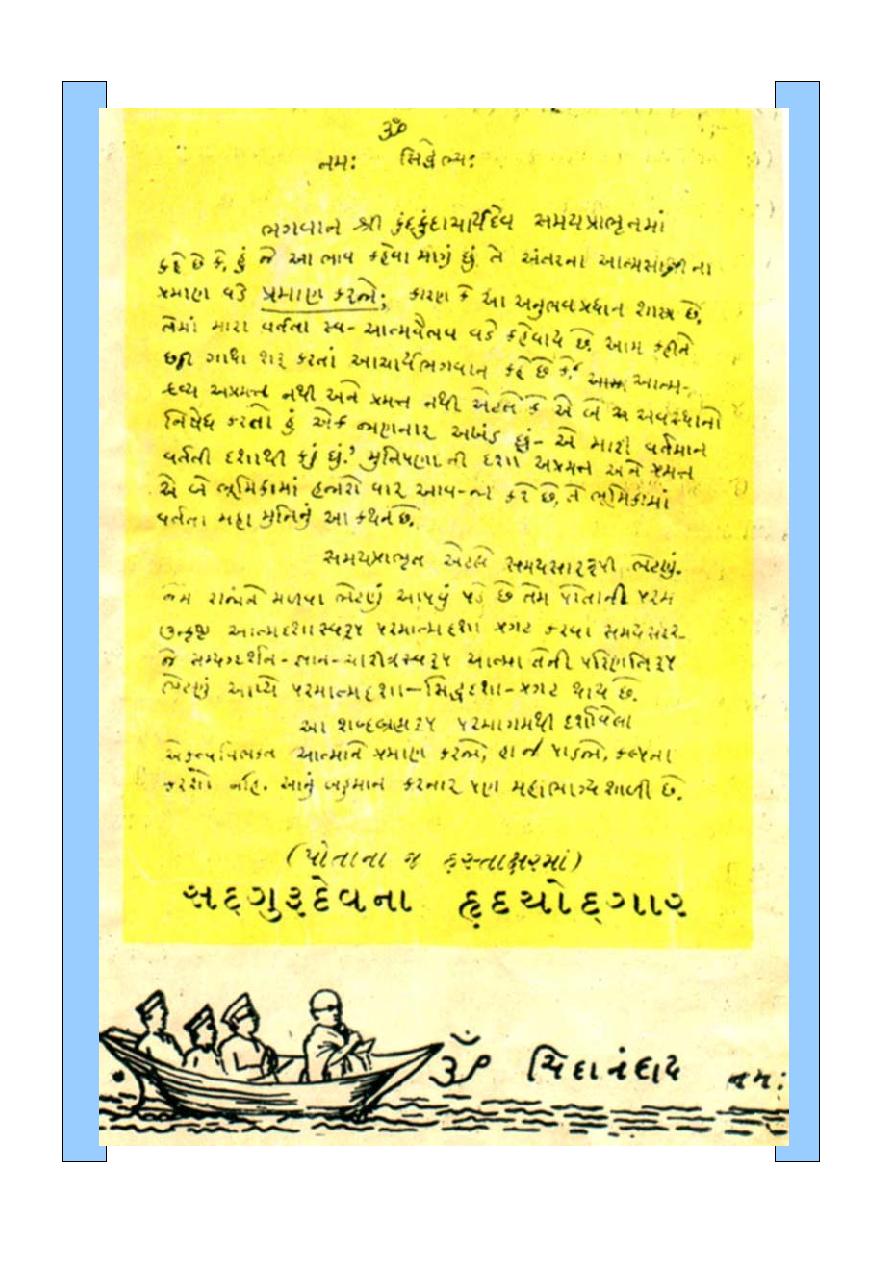 ૐ
નમઃ સિદ્ધેભ્યઃ
ભગવાન શ્રી કુંદકુંદાચાર્યદેવ સમયપ્રાભૃતમાં
કહે છે કે, હું જે આ ભાવ કહેવા માગું છું તે અંતરના આત્મસાક્ષીના
પ્રમાણ વડે પ્રમાણ કરજો; કારણ કે આ અનુભવપ્રધાન શાસ્ત્ર છે,
તેમાં મારા વર્તતા સ્વ-આત્મવૈભવ વડે કહેવાય છે. આમ કહીને
છઠ્ઠી ગાથા શરૂ કરતાં આચાર્યભગવાન કહે છે કે, ‘ આત્મ-
દ્રવ્ય અપ્રમત્ત નથી અને પ્રમત્ત નથી એટલે કે એ બે અવસ્થાનો
નિષેધ કરતો હું એક જાણનાર અખંડ છું- એ મારી વર્તમાન
વર્તતી દશાથી કહું છું.’ મુનિપણાની દશા અપ્રમત્ત અને પ્રમત્ત
એ બે ભૂમિકામાં હજારો વાર આવ-જા કરે છે, તે ભૂમિકામાં
વર્તતા મહા મુનિનું આ કથન છે.
સમયપ્રાભૃત એટલે સમયસારરૂપી ભેટણું.
જેમ રાજાને મળવા ભેટણું આપવું પડે છે તેમ પોતાની પરમ
ઉત્કૃષ્ટ આત્મદશાસ્વરૂપ પરમાત્મદશા પ્રગટ કરવા સમયસાર-
જે સમ્યગ્દર્શન-જ્ઞાન-ચારીત્રસ્વરૂપ આત્મા તેની પરિણતિરૂપ
ભેટણું આપ્યે પરમાત્મદશા-સિદ્ધદશા-પ્રગટ થાય છે.
આ શબ્દબ્રહ્મરૂપ પરમાગમથી દર્શાવેલા
એકત્વવિભક્ત આત્માને પ્રમાણ કરજો, હા જ પાડજો, કલ્પના
કરશો નહિ. આનું બહુમાન કરનાર પણ મહાભાગ્યશાળી છે.
(પોતાના જ હસ્તાક્ષરમાં)
સદ્ગુરૂદેવના હૃદયોદ્ગાર
ૐ ચિદાનંદાય નમઃ